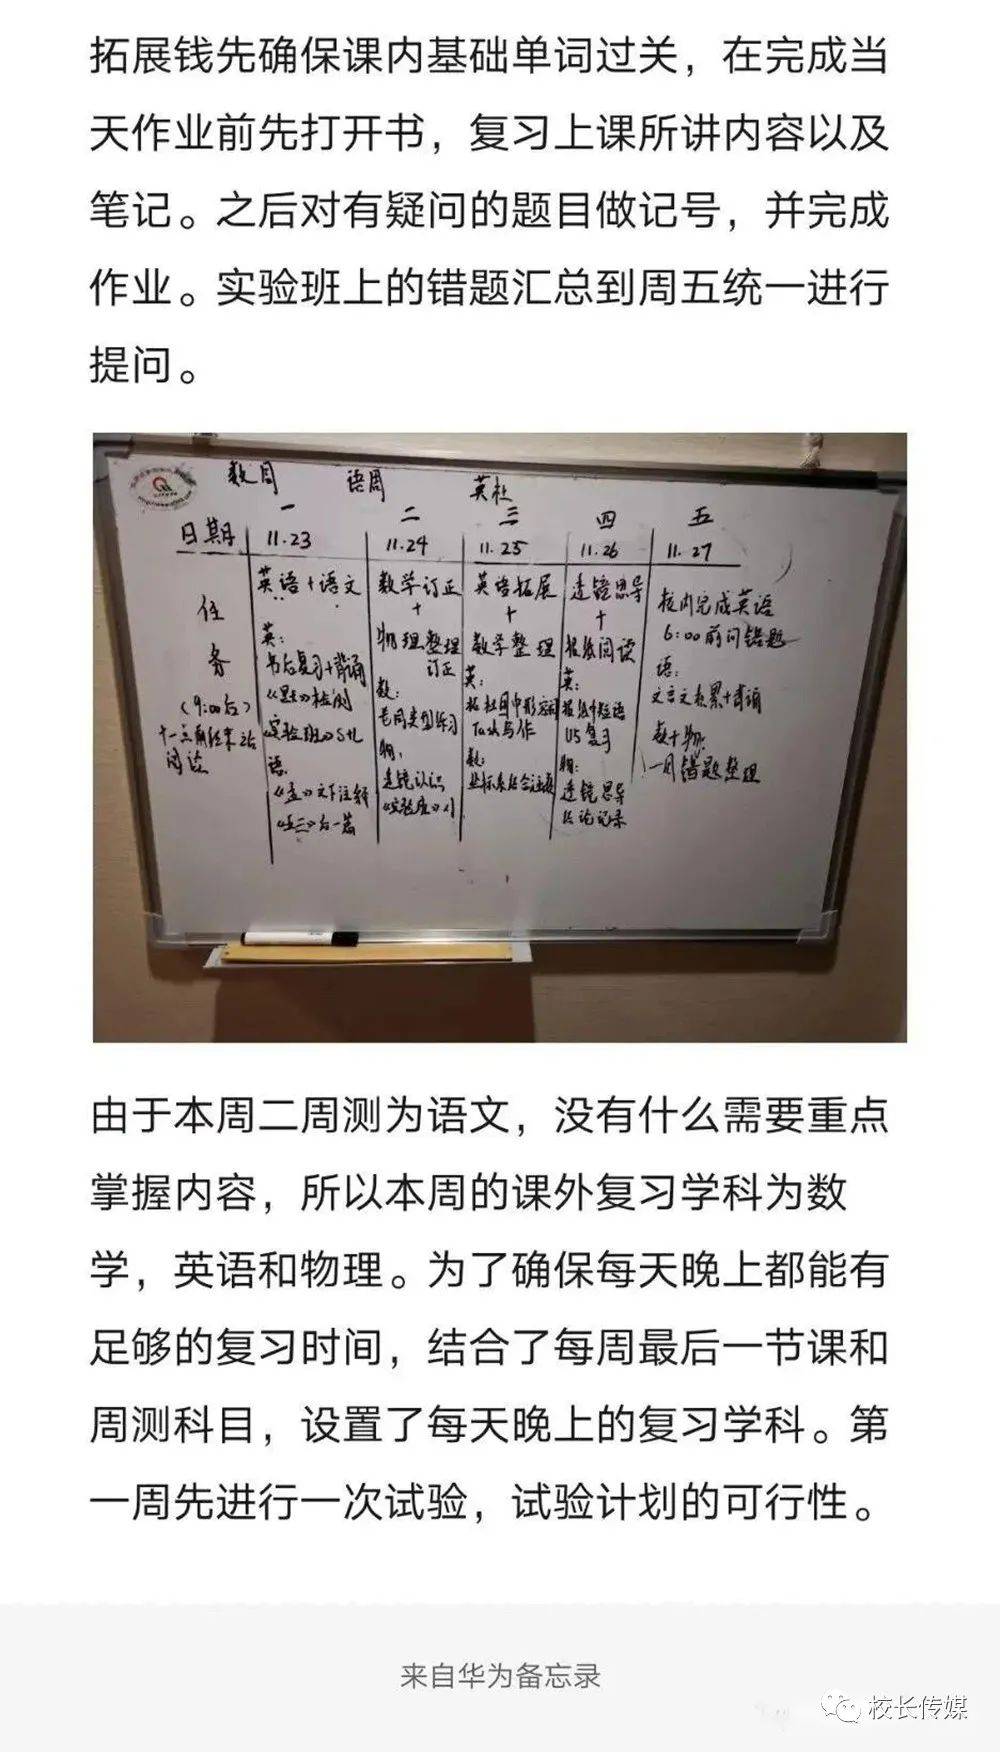 拓展钱先确保课内基础单词过关，在完成当
天作业前先打开书，复习上课所讲内容以及
笔记。之后对有疑问的题目做记号，并完成
作业。实验班上的错题汇总到周五统一进行
提问。
数周 语周 英社
一 二 三 四 五
日期 11.23 11.24 11.25 11.26 11.27
任务
（9:00后）
英语+语文
英：
书后复习+背诵
《默》检测
《实验班》
语
数学订正
+
物理整理
订正
数：
物：
透镜认识
英语拓展
+
数学整理
英：
数：
透镜思导
+
报纸阅读
英：
报纸中短语
U5复习
物：
透镜思导
结论记录
校内完成英语
6:00前问错题
语：
文言文积累+背诵
数+物：
一周错题整理
由于本周二周测为语文，没有什么需要重点
掌握内容，所以本周的课外复习学科为数
学，英语和物理。为了确保每天晚上都能有
足够的复习时间，结合了每周最后一节课和
周测科目，设置了每天晚上的复习学科。第
一周先进行一次试验，试验计划的可行性。
来自华为备忘录
校长传媒